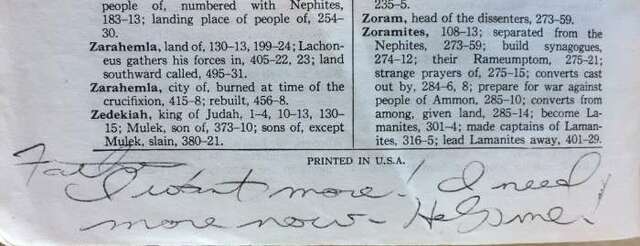 people of, numbered with Nephites,
183–13; landing place of people of, 254–
30.
Zarahemla, land of, 130–13, 199–24; Lachon-
eus gathers his forces in, 405–22, 23; land
southward called, 495–31.
Zarahemla, city of, burned at time of the
crucifixion, 415–8; rebuilt, 456–8.
Zedekiah, king of Judah, 1–4, 10–13, 130–
15; Mulek, son of, 373–10; sons of, except
Mulek, slain, 380–21.
235–5.
Zoram, head of the dissenters, 273–59.
Zoramites, 108–13; separated from the
Nephites, 273–59; build synagogues,
274–12; their Rameumptom, 275–21;
strange prayers of, 275–15; converts cast
out by, 284–6, 8; prepare for war against
people of Ammon, 285–10; converts from
among, given land, 285–14; become La-
manites, 301–4; made captains of Laman-
ites, 316–5; lead Lamanites away, 401–29.
PRINTED IN U.S.A.
Father I want more! I need
more now – Help me!